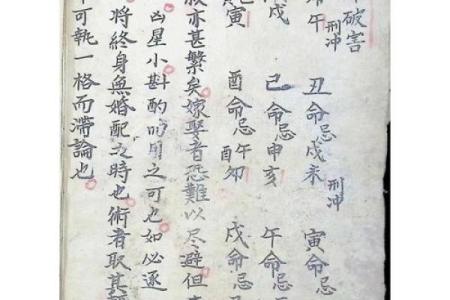 破害
刑冲
午 丑命忌戌未 刑冲 寅命忌
戌 己命忌申亥 午命忌
寅 酉命忌午卯酉 戌命忌
殺亦甚繁矣嫁娶者恐難以尽避但
凶星小斟酌的用之可也如必逐
將終身無婚配之時也術者取其
可執一格而滯論也